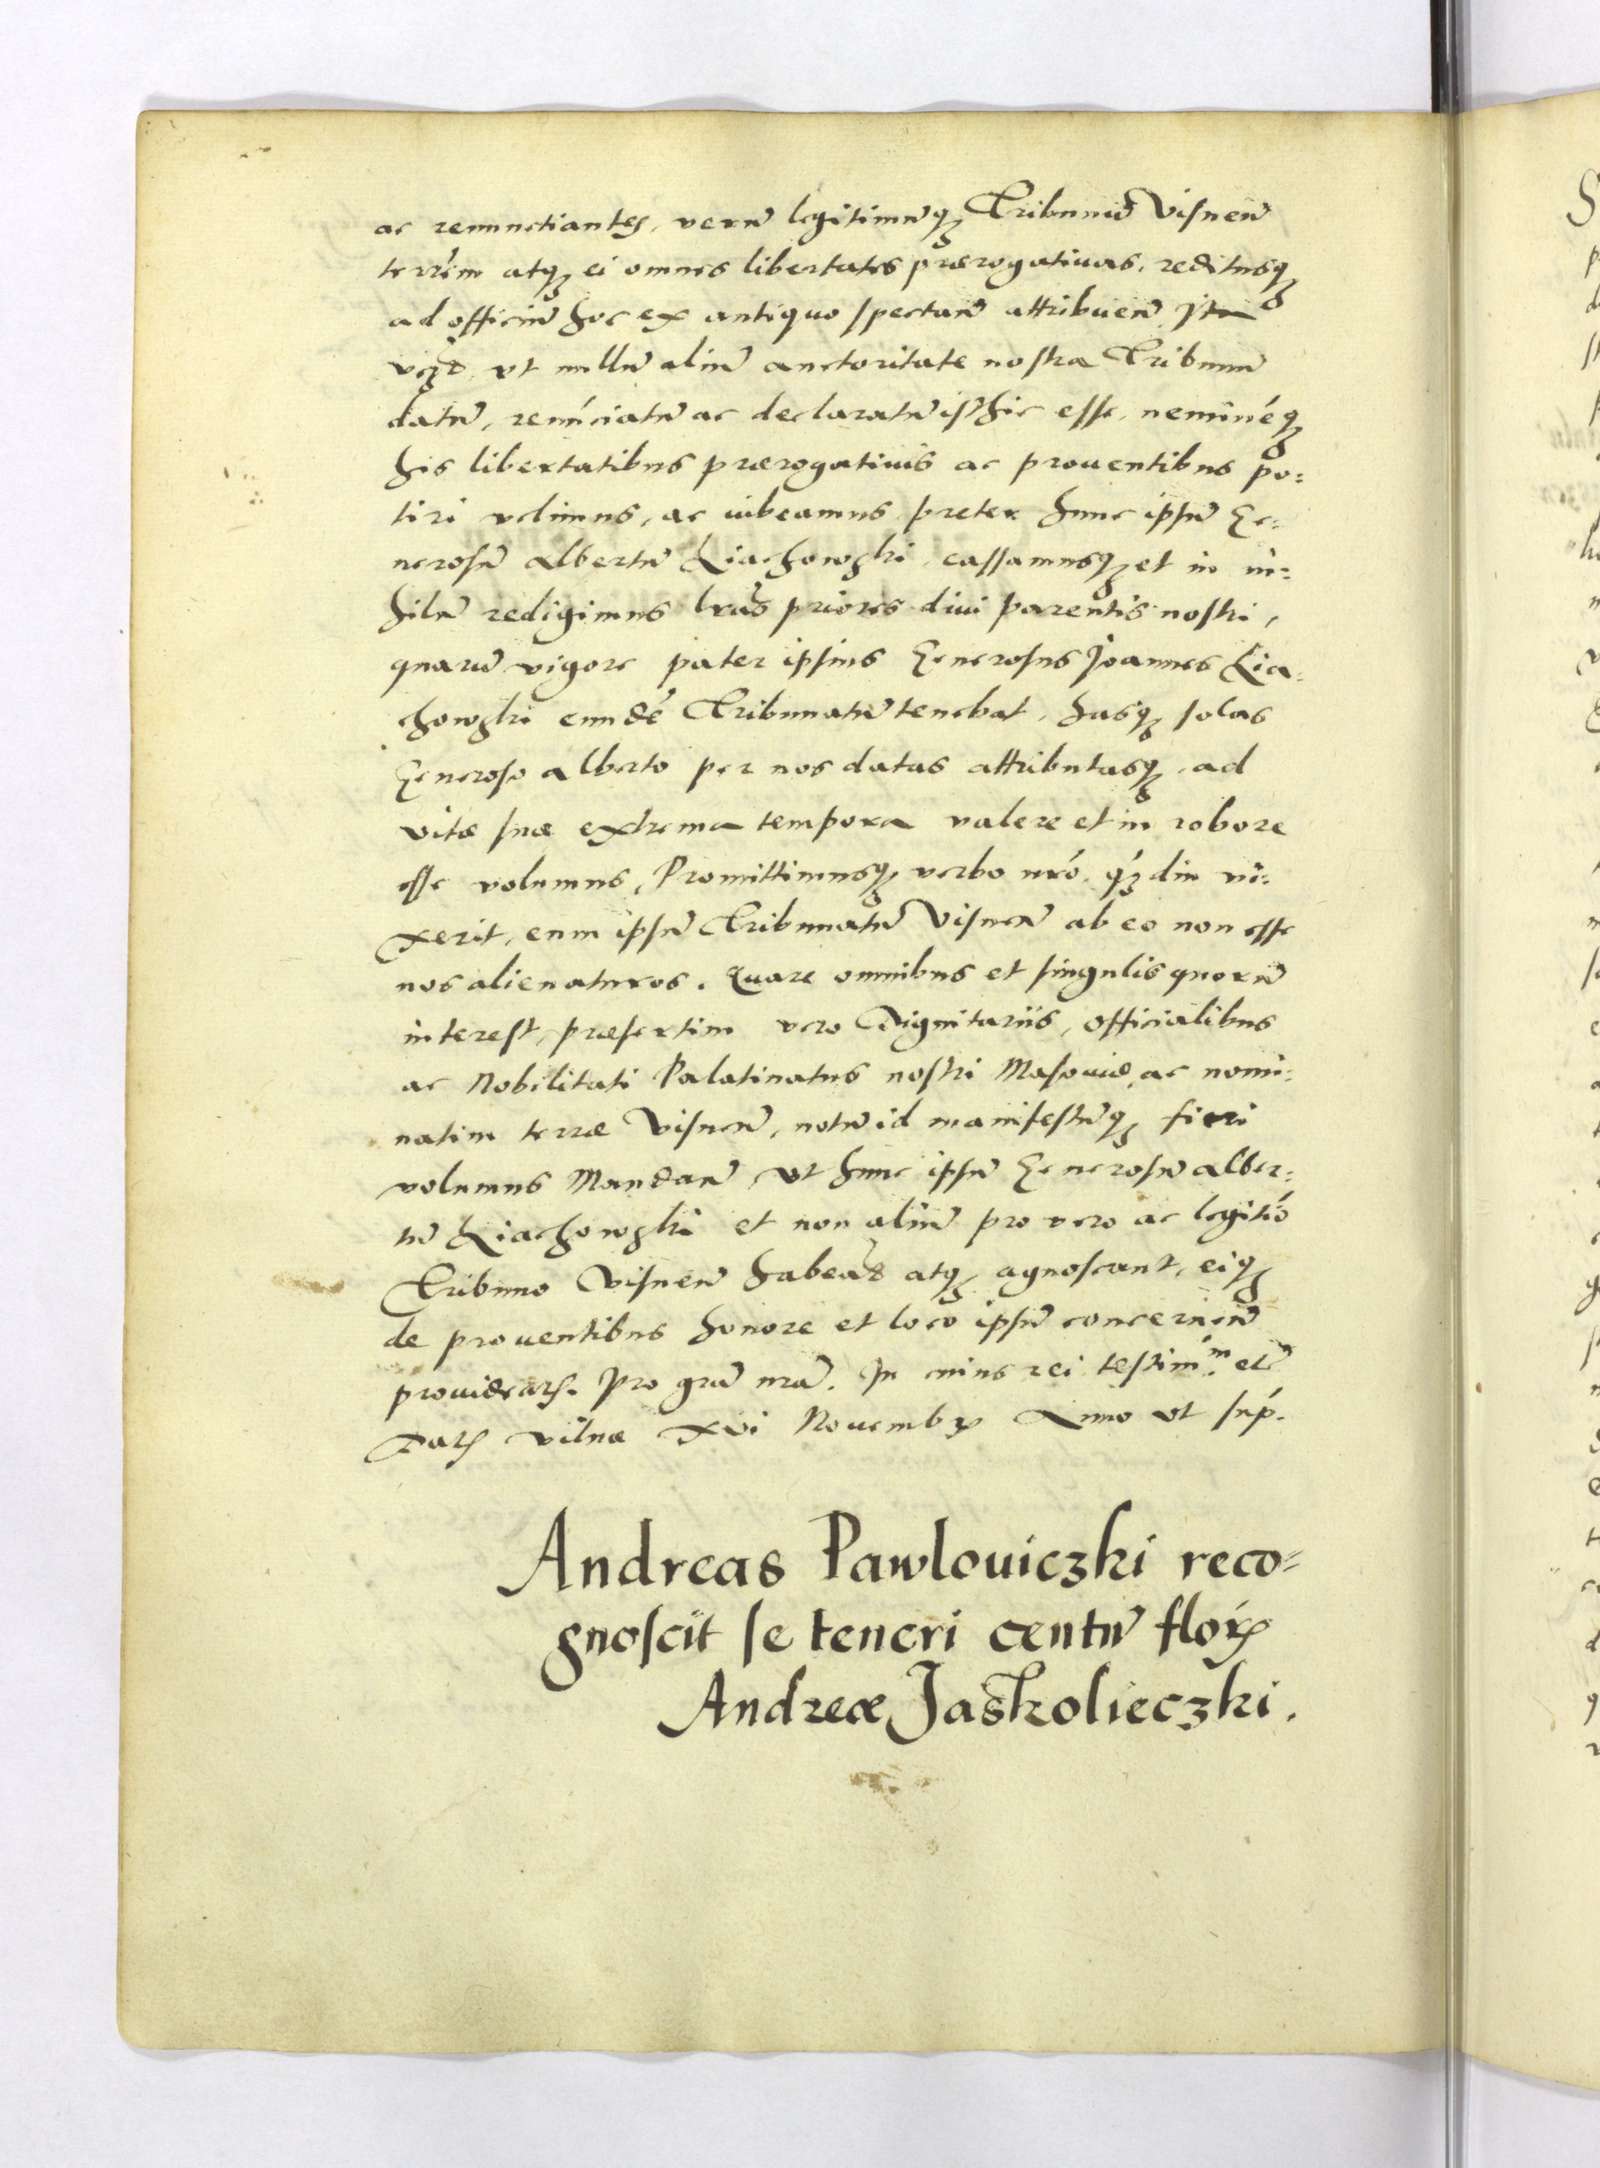 ac renunctiantes, verũ legitimũq₃ Tribunũ Visneñ
terrẽm atq₃ ei omnes libertates prærogatiuas, reditusq₃
ad officiũ hoc ex antiquo spectañ attribueñ Ita
vt nullũ aliũ auctoritate nostra Tribunũ
datũ, renũciatũ ac declaratũ isthic esse, neminéq₃
his libertatibus prærogatiuis ac prouentibus po:
tiri velimus, ac iubeamus preter hunc ipsũ Ge:
nerosũ Albertũ Liachowski, cassamusq₃ et in ni:
hilũ redigimus lrãs priores diui parentis nostri,
quarũ vigore pater ipsius Generosus Joannes Lia:
chowski eundé Tribunatũ tenebat, hasq₃ solas
Generoso Alberto per nos datas attributasq₃, ad
vitæ suæ extrema tempora valere et in robore
esse volumus, Promittimusq₃ verbo nró q́₃ diu vi:
xerit, eum ipsũ Tribunatũ Visneñ ab eo non esse
nos alienaturos. Quare omnibus et singulis quorũ
interest, præsertim vero Dignitariis, officialibus
ac Nobilitati Palatinatus nostri Masouiæ, ac nomi:
natim terræ Visneñ, notũ id manifestũq₃ fieri
volumus Mandañ, vt hunc ipsũ Generosũ Alber:
tũ Liachowski et non aliũ pro vero ac legitió
Tribuno Visneñ habeãt atq₃ agnoscant, eiq₃
de prouentibus honore et loco ipsũ concerneñ
prouideaꝶ. Pro grã nrã. In cuius rei testim̃ᵐ. etc̃
Datꝶ Vilnæ xvi Novembꝶ Anno vt sup̃.
Andreas Pawlouiczki reco-
gnoscit se teneri centũ floꝶ
Andreæ Jaskolieczki.